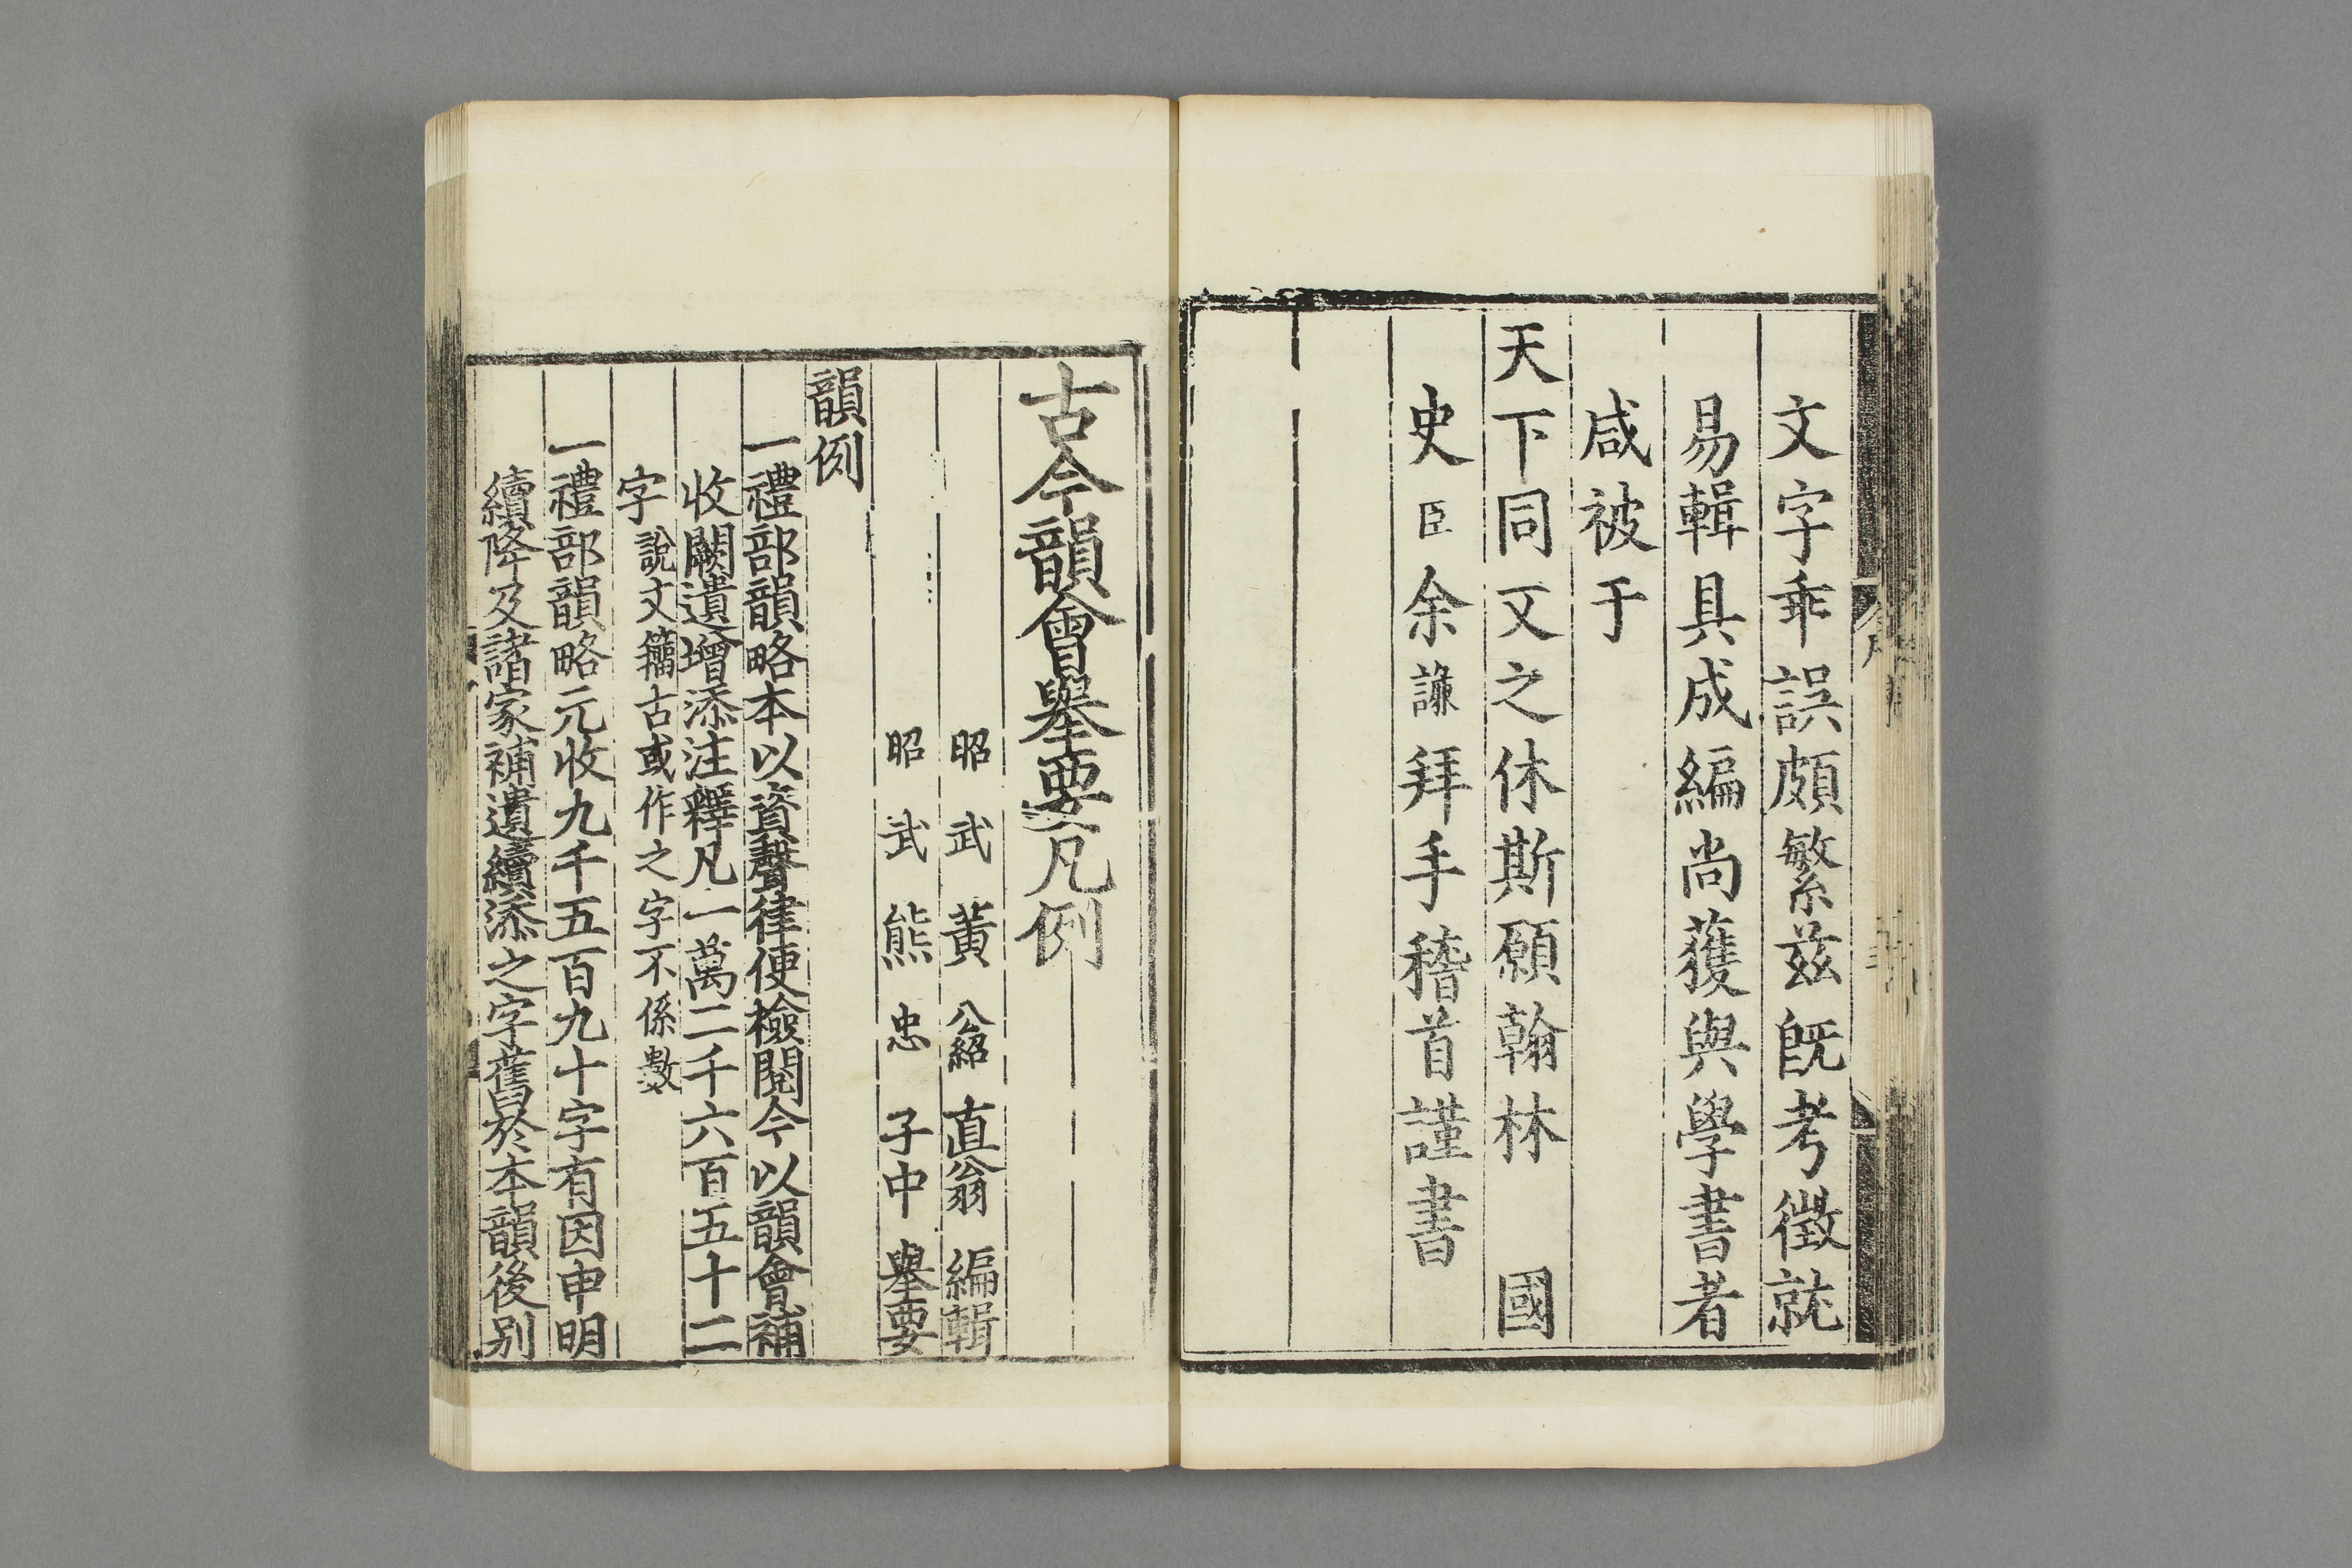 文字乖誤頗繁茲旣考徵就
易輯具成編尚獲與學書者
咸被于
天下同文之休斯願翰林 國
史臣余謙拜手稽首謹書
古今韻會舉要凡例
昭武黃公紹直翁編輯
昭武熊忠子中舉要
韻例
一禮部韻略本以資聲律便檢閱今以韻會補
收闕遺增添注釋凡一萬二千六百五十二
字說文籀古或作之字不係數
一禮部韻略元收九千五百九十字有因申明
續降及諸家補遺續添之字舊於本韻後别